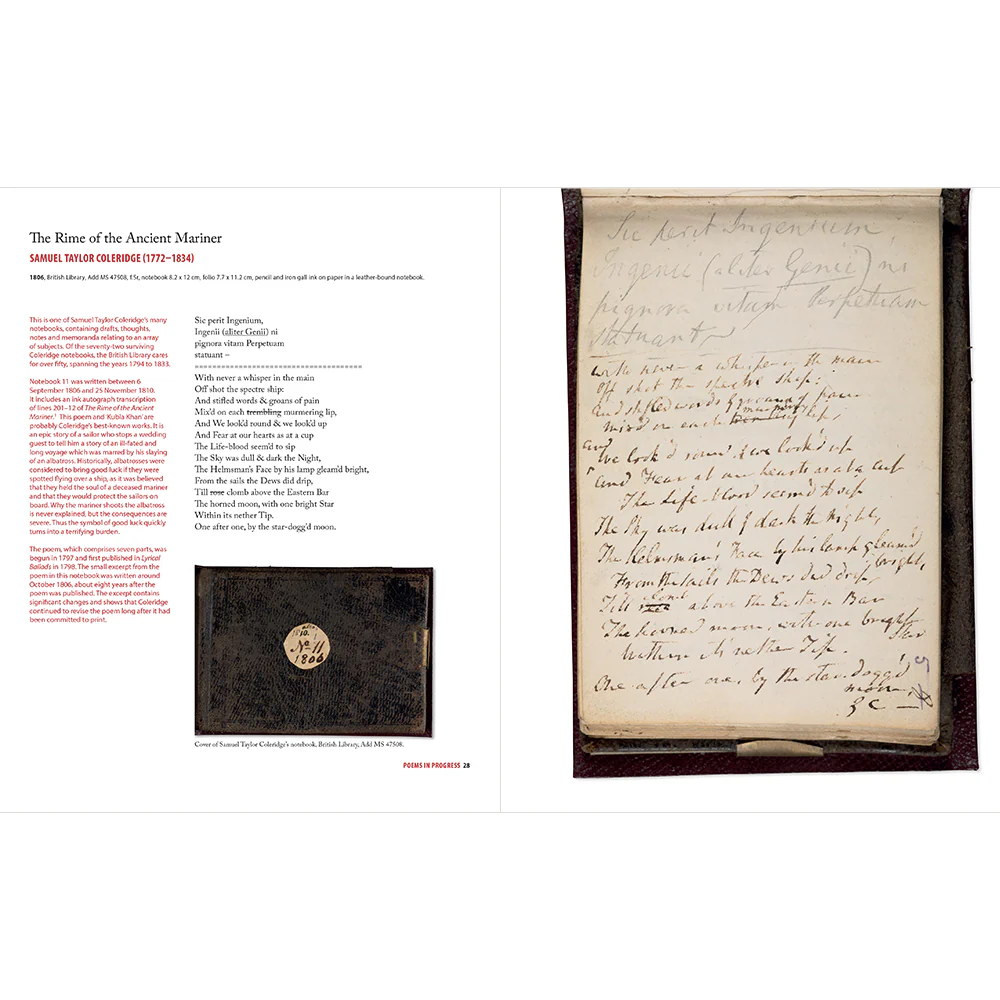 The Rime of the Ancient Mariner
SAMUEL TAYLOR COLERIDGE (1772–1834)
1806, British Library, Add MS 47508, f.5r, notebook 8.2 x 12 cm, folio 7.7 x 11.2 cm, pencil and iron gall ink on paper in a leather-bound notebook.
This is one of Samuel Taylor Coleridge's many
notebooks, containing drafts, thoughts,
notes and memoranda relating to an array
of subjects. Of the seventy-two surviving
Coleridge notebooks, the British Library cares
for over fifty, spanning the years 1794 to 1833.
Notebook 11 was written between 6
September 1806 and 25 November 1810.
It includes an ink autograph transcription
of lines 201–12 of The Rime of the Ancient
Mariner.¹ This poem and 'Kubla Khan' are
probably Coleridge's best-known works. It is
an epic story of a sailor who stops a wedding
guest to tell him a story of an ill-fated and
long voyage which was marred by his slaying
of an albatross. Historically, albatrosses were
considered to bring good luck if they were
spotted flying over a ship, as it was believed
that they held the soul of a deceased mariner
and that they would protect the sailors on
board. Why the mariner shoots the albatross
is never explained, but the consequences are
severe. Thus the symbol of good luck quickly
turns into a terrifying burden.
The poem, which comprises seven parts, was
begun in 1797 and first published in Lyrical
Ballads in 1798. The small excerpt from the
poem in this notebook was written around
October 1806, about eight years after the
poem was published. The excerpt contains
significant changes and shows that Coleridge
continued to revise the poem long after it had
been committed to print.
Sic perit Ingenium,
Ingenii (aliter Genii) ni
pignora vitam Perpetuam
statuant –
====================================
With never a whisper in the main
Off shot the spectre ship:
And stifled words & groans of pain
Mix'd on each trembling murmering lip,
And We look'd round & we look'd up
And Fear at our hearts as at a cup
The Life-blood seem'd to sip
The Sky was dull & dark the Night,
The Helmsman's Face by his lamp gleam'd bright,
From the sails the Dews did drip,
Till rose clomb above the Eastern Bar
The horned moon, with one bright Star
Within its nether Tip.
One after one, by the star-dogg'd moon.
also
1810.
No 11
1806
Cover of Samuel Taylor Coleridge's notebook, British Library, Add MS 47508.
POEMS IN PROGRESS 28
Sic perit Ingenium,
Ingenii (aliter Genii) ni
pignora vitam Perpetuam
statuant –
with never a whisper in the main
Off shot the spectre ship:
And stifled words & groans of pain
murmering
mix'd on each trembling lip,
and
We look'd round & we look'd up
And Fear at our hearts as at a cup
The Life-blood seem'd to sip
The Sky was dull & dark the Night,
The Helmsman's Face by his lamp gleam'd
bright,
From the sails the Dews did drip,
clomb
Till rose above the Eastern Bar
The horned moon, with one bright
Star
Within its nether Tip.
One after one, by the star-dogg'd
moon,
&c —